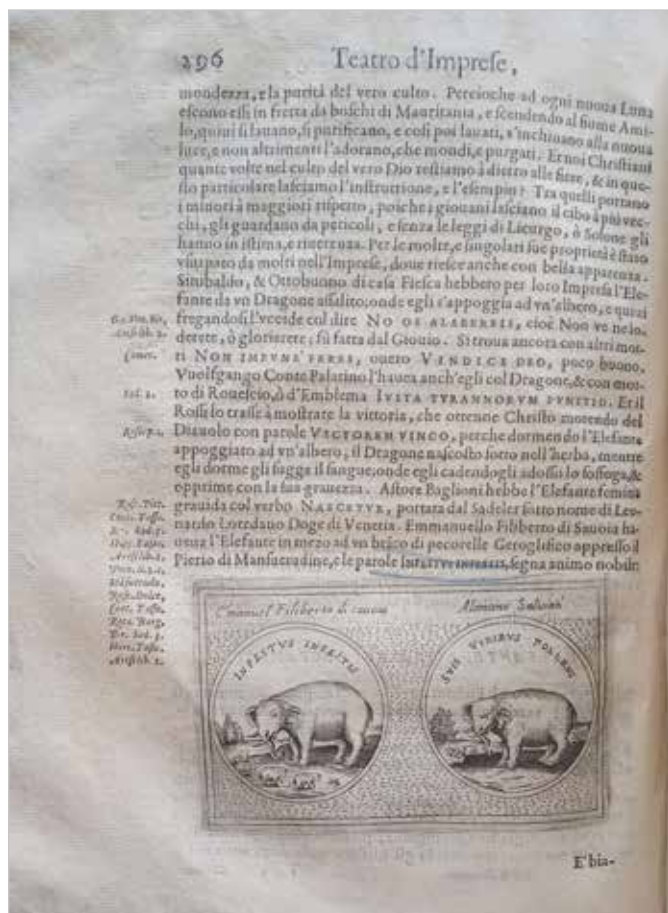 296 Teatro d'Imprese,
mondezza, e la purità del vero culto. Percioche ad ogni nuoua Luna
escono essi in fretta da boschi di Mauritania, e scendendo al fiume Ami-
lo, quiui si lauano, si purificano, e così poi lauati, s'inchinano alla nuoua
luce, e non altrimenti l'adorano, che mondi, e purgati. Et noi Christiani
quante volte nel culto del vero Dio restiamo à dietro alle fiere, & in que-
sto particolare lasciamo l'instruttione, e l'esempio? Tra quelli portano
i minori à maggiori rispetto, poiche i giouani lasciano il cibo à più vec-
chi, gli guardano da pericoli, e senza le leggi di Licurgo, ò Solone gli
hanno in istima, e riuerenza. Per le molte, e singolari sue proprietà è stato
vsurpato da molti nell'Imprese, doue riesce anche con bella apparenza.
Sinibaldo, & Ottobuono di casa Fiesca hebbero per loro Impresa l'Ele-
fante da vn Dragone assalito; onde egli s'appoggia ad vn'albero, e quasi
fregandosi l'vccide col dire NO OS ALABEREIS, cioè Non ve ne lo-
derete, ò glorierete; fù fatta dal Giouio. Si troua ancora con altri mot-
ti NON IMPVNE' FERES, ouero VINDICE DEO, poco buono.
Vuolfgango Conte Palatino l'hauea anch'egli col Dragone, & con mot-
to di Rouescio, ò d'Emblema IVSTA TYRANNORVM PVNITIO. Et il
Rossi lo trasse à mostrare la vittoria, che ottenne Christo morendo del
Diauolo con parole VICTOREM VINCO, perche dormendo l'Elefante
appoggiato ad vn'albero, il Dragone nascosto sotto nell'herba, mentre
egli dorme gli sugge il sangue; onde egli cadendogli adosso lo soffoga, &
opprime con la sua grauezza. Astore Baglioni hebbe l'Elefante femina
grauida col verbo NASCETVR, portata dal Sadeler sotto nome di Leo-
nardo Loredano Doge di Venetia. Emmanuello Filiberto di Sauoia ha-
ueua l'Elefante in mezo ad vn branco di pecorelle Geroglifico appresso il
Pierio di Mansuetudine, e le parole INFESTVS INFESTIS, segna animo nobile
Sad. 2.
Emanuel Filiberto di sauoia
INFESTVS INFESTIS
SVIS VIRIBVS POLLENS
E'bia-